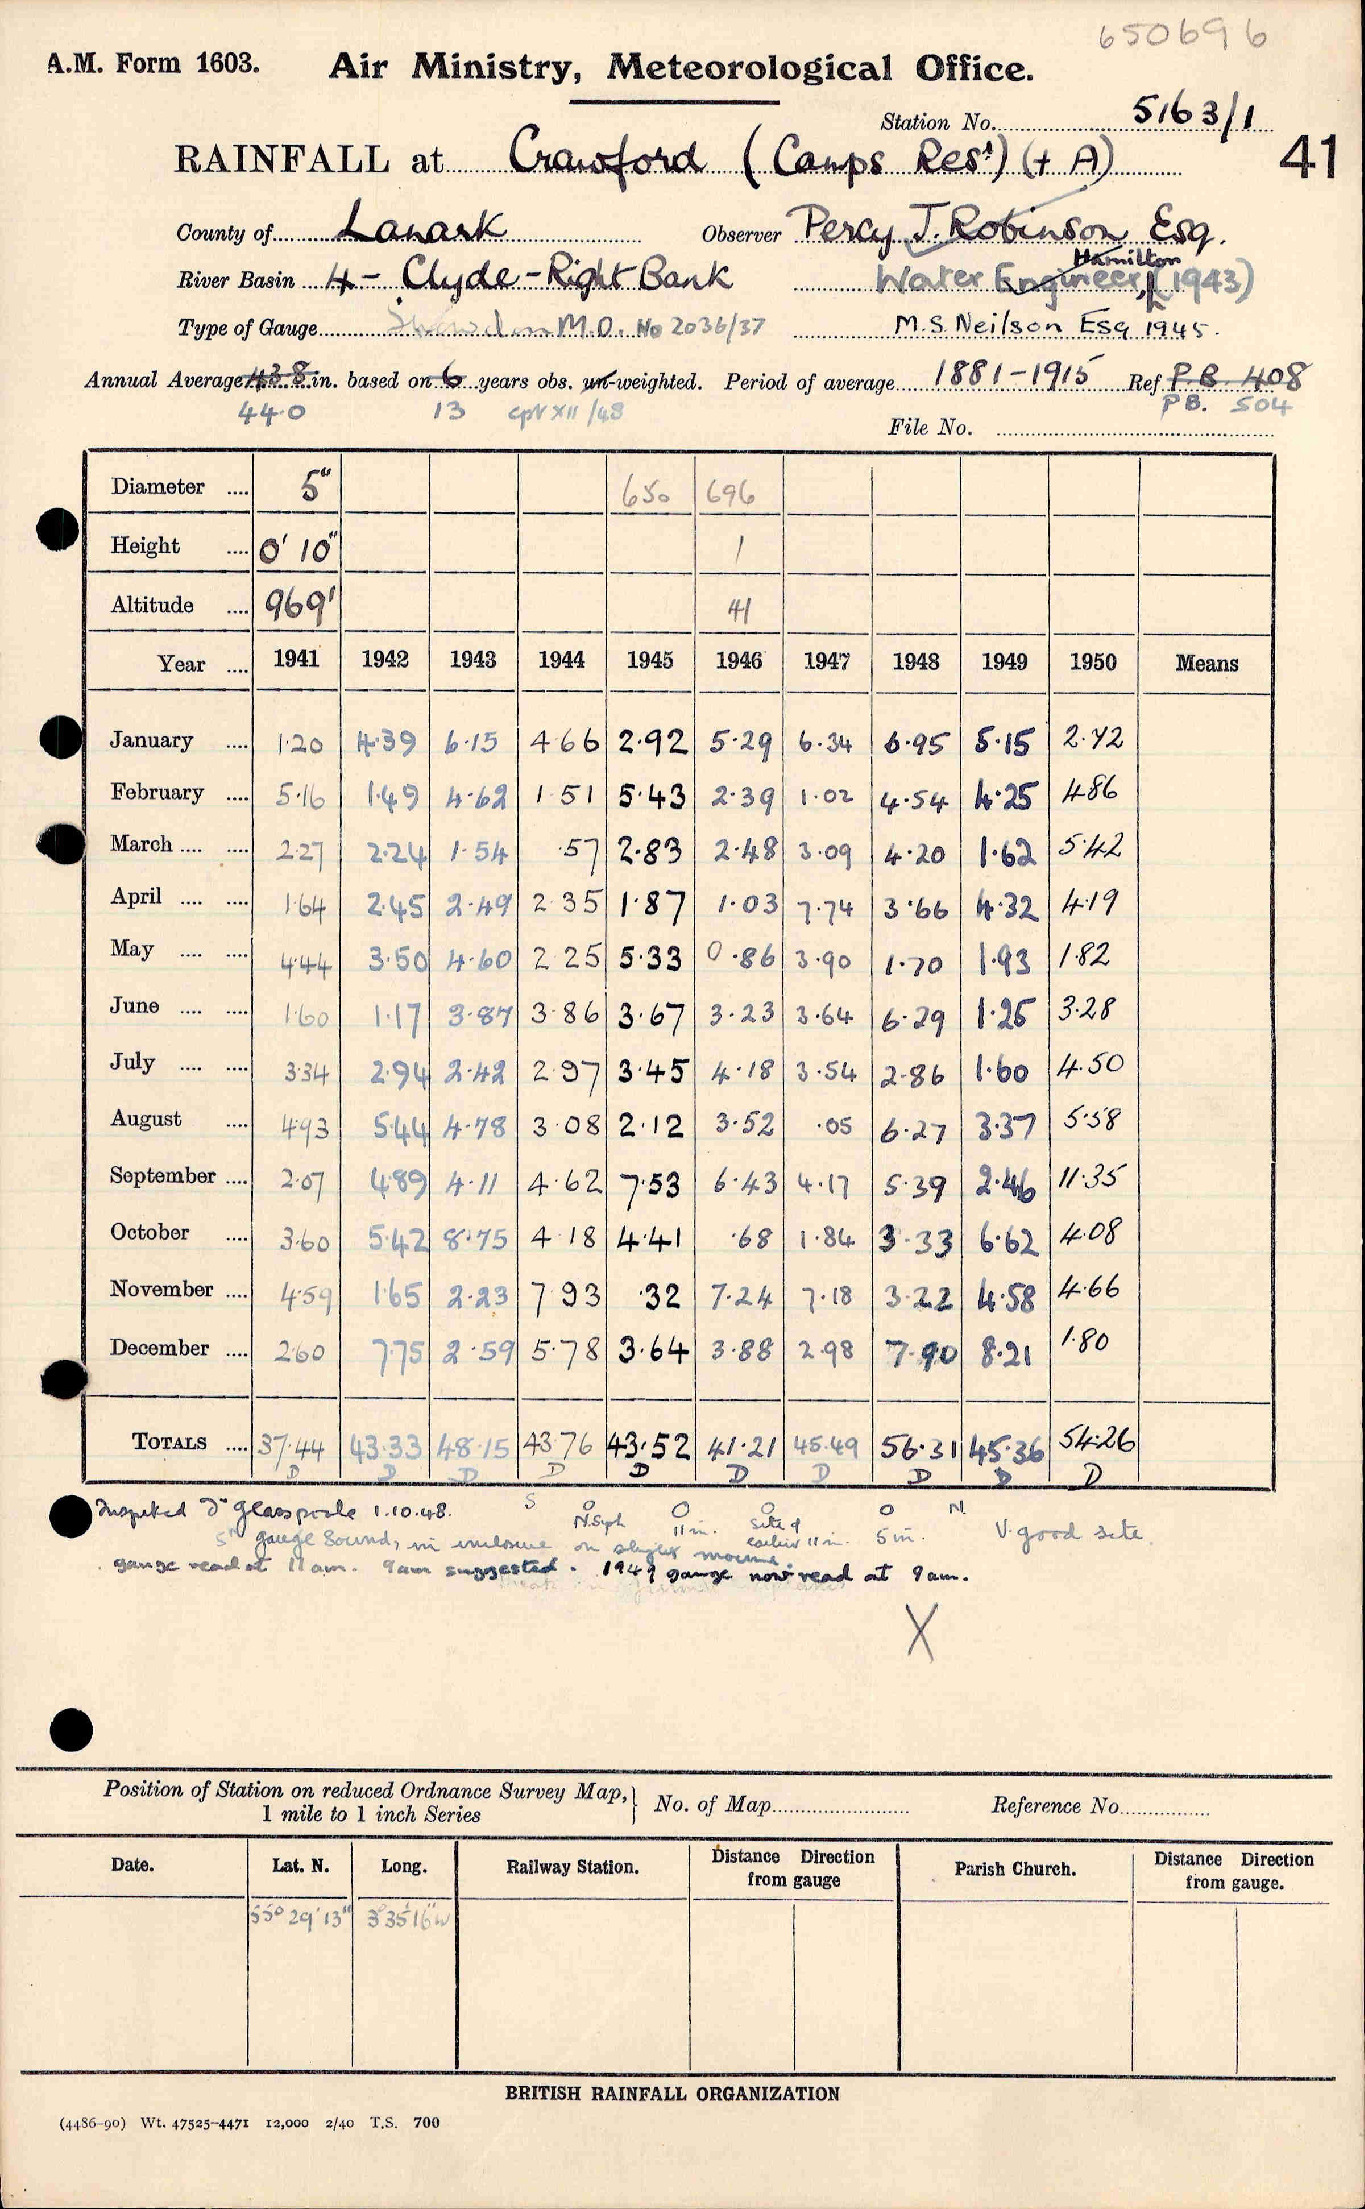 650696
A.M. Form 1603. Air Ministry, Meteorological Office.
Station No. 5163/1
RAINFALL at Crawford (Camps Resr) (+ A) 41
County of Lanark Observer Percy J. Robinson Esq.
Hamilton
River Basin 4 - Clyde - Right Bank Water Engineer, (1943)
Type of Gauge M.O. No 2036/37 M.S. Neilson Esq 1945.
Annual Average 43.8 in. based on 6 years obs. un-weighted. Period of average 1881-1915 Ref P.B. 408
44.0 13 XII/48 P.B. 504
File No.
Diameter .... 5" 650 696
Height .... 0' 10" 1
Altitude .... 969' 41
Year .... 1941 1942 1943 1944 1945 1946 1947 1948 1949 1950 Means
January .... 1.20 4.39 6.15 4.66 2.92 5.29 6.34 6.95 5.15 2.72
February .... 5.16 1.49 4.62 1.51 5.43 2.39 1.02 4.54 4.25 4.86
March .... .... 2.27 2.24 1.54 .57 2.83 2.48 3.09 4.20 1.62 5.42
April .... .... 1.64 2.45 2.49 2.35 1.87 1.03 7.74 3.66 4.32 4.19
May .... .... 4.44 3.50 4.60 2.25 5.33 0.86 3.90 1.70 1.93 1.82
June .... .... 1.60 1.17 3.87 3.86 3.67 3.23 3.64 6.29 1.25 3.28
July .... .... 3.34 2.94 2.42 2.97 3.45 4.18 3.54 2.86 1.60 4.50
August .... 4.93 5.44 4.78 3.08 2.12 3.52 .05 6.27 3.37 5.58
September .... 2.07 4.89 4.11 4.62 7.53 6.43 4.17 5.39 2.46 11.35
October .... 3.60 5.42 8.75 4.18 4.41 .68 1.84 3.33 6.62 4.08
November .... 4.59 1.65 2.23 7.93 .32 7.24 7.18 3.22 4.58 4.66
December .... 2.60 7.75 2.59 5.78 3.64 3.88 2.98 7.90 8.21 1.80
TOTALS .... 37.44 43.33 48.15 43.76 43.52 41.21 45.49 56.31 45.36 54.26
D D D D D D D D D D
Inspected Dr Glasspoole 1.10.48. S O O O O N
11 in. Site of earlier 11 in. 5 in. V. good site
5" gauge sound, in enclosure on slight mound.
gauge read at 11 am. 9am suggested. 1949 gauge now read at 9 am.
X
Position of Station on reduced Ordnance Survey Map,
1 mile to 1 inch Series
No. of Map Reference No.
Date. Lat. N. Long. Railway Station. Distance Direction from gauge Parish Church. Distance Direction from gauge.
55° 29' 13" 3° 35' 16" W
BRITISH RAINFALL ORGANIZATION
(4486-90) Wt. 47525-4471 12,000 2/40 T.S. 700